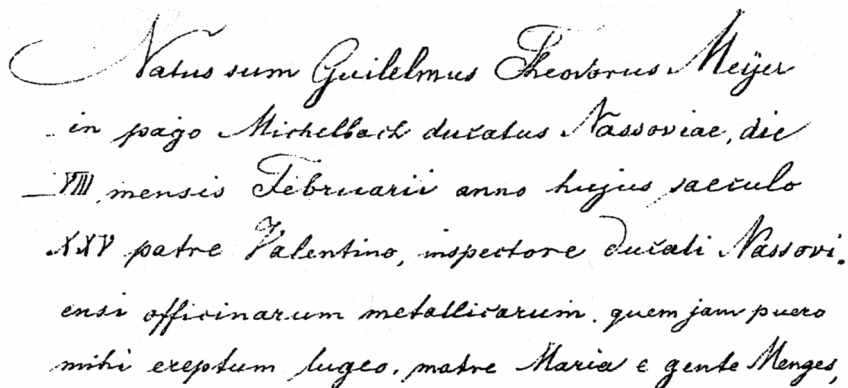 Natus sum Guilelmus Theodorus Meÿer
in pago Michelbach ducatus Nassoviae, die
VIII mensis Februarii anno hujus saeculo
XXV patre Valentino, inspectore ducali Nassovi-
ensi officinarum metallicarum, quem jam puero
mihi ereptum lugeo, matre Maria e gente Menges,